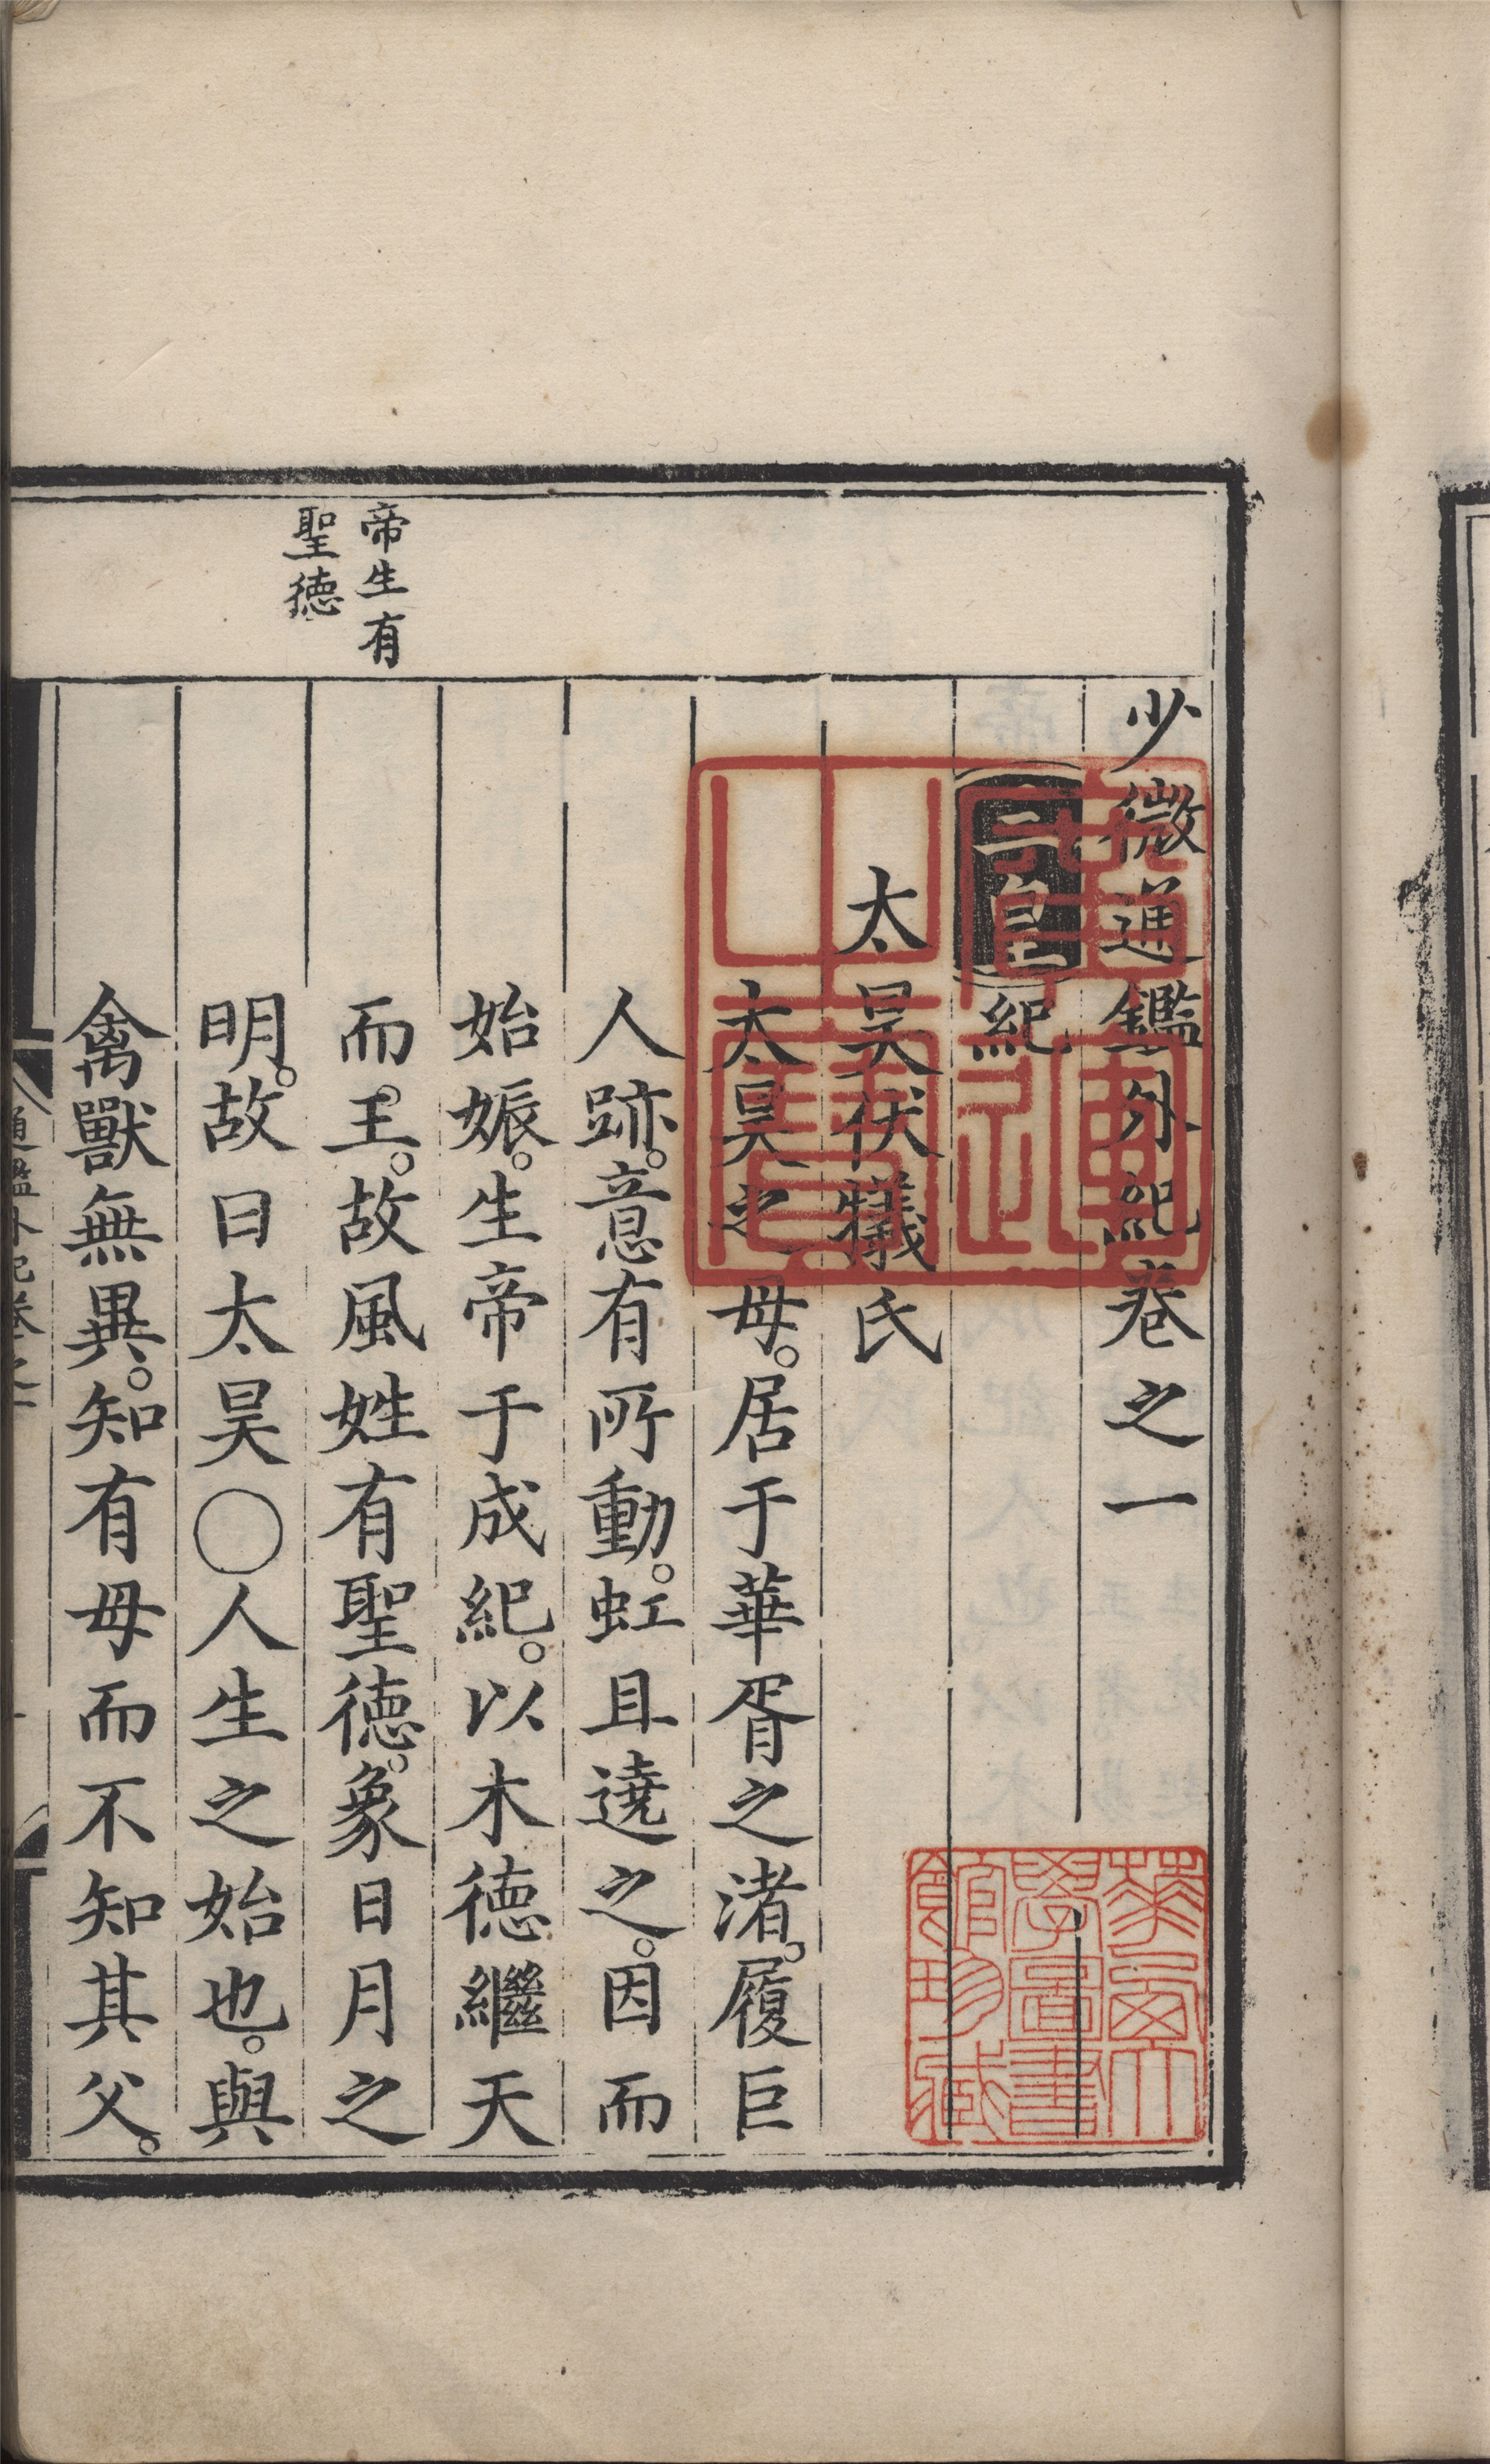 少微通鑑外紀卷之一
三皇紀
太昊伏犧氏
太昊之母。居于華胥之渚。履巨
人跡。意有所動。虹且遶之。因而
始娠。生帝于成紀。以木德繼天
而王。故風姓有聖德。象日月之
明。故曰太昊○人生之始也。與
禽獸無異。知有母而不知其父。
帝生有
聖德
通鑑外紀卷之一
廣運之寶
華西大學圖書館珍藏